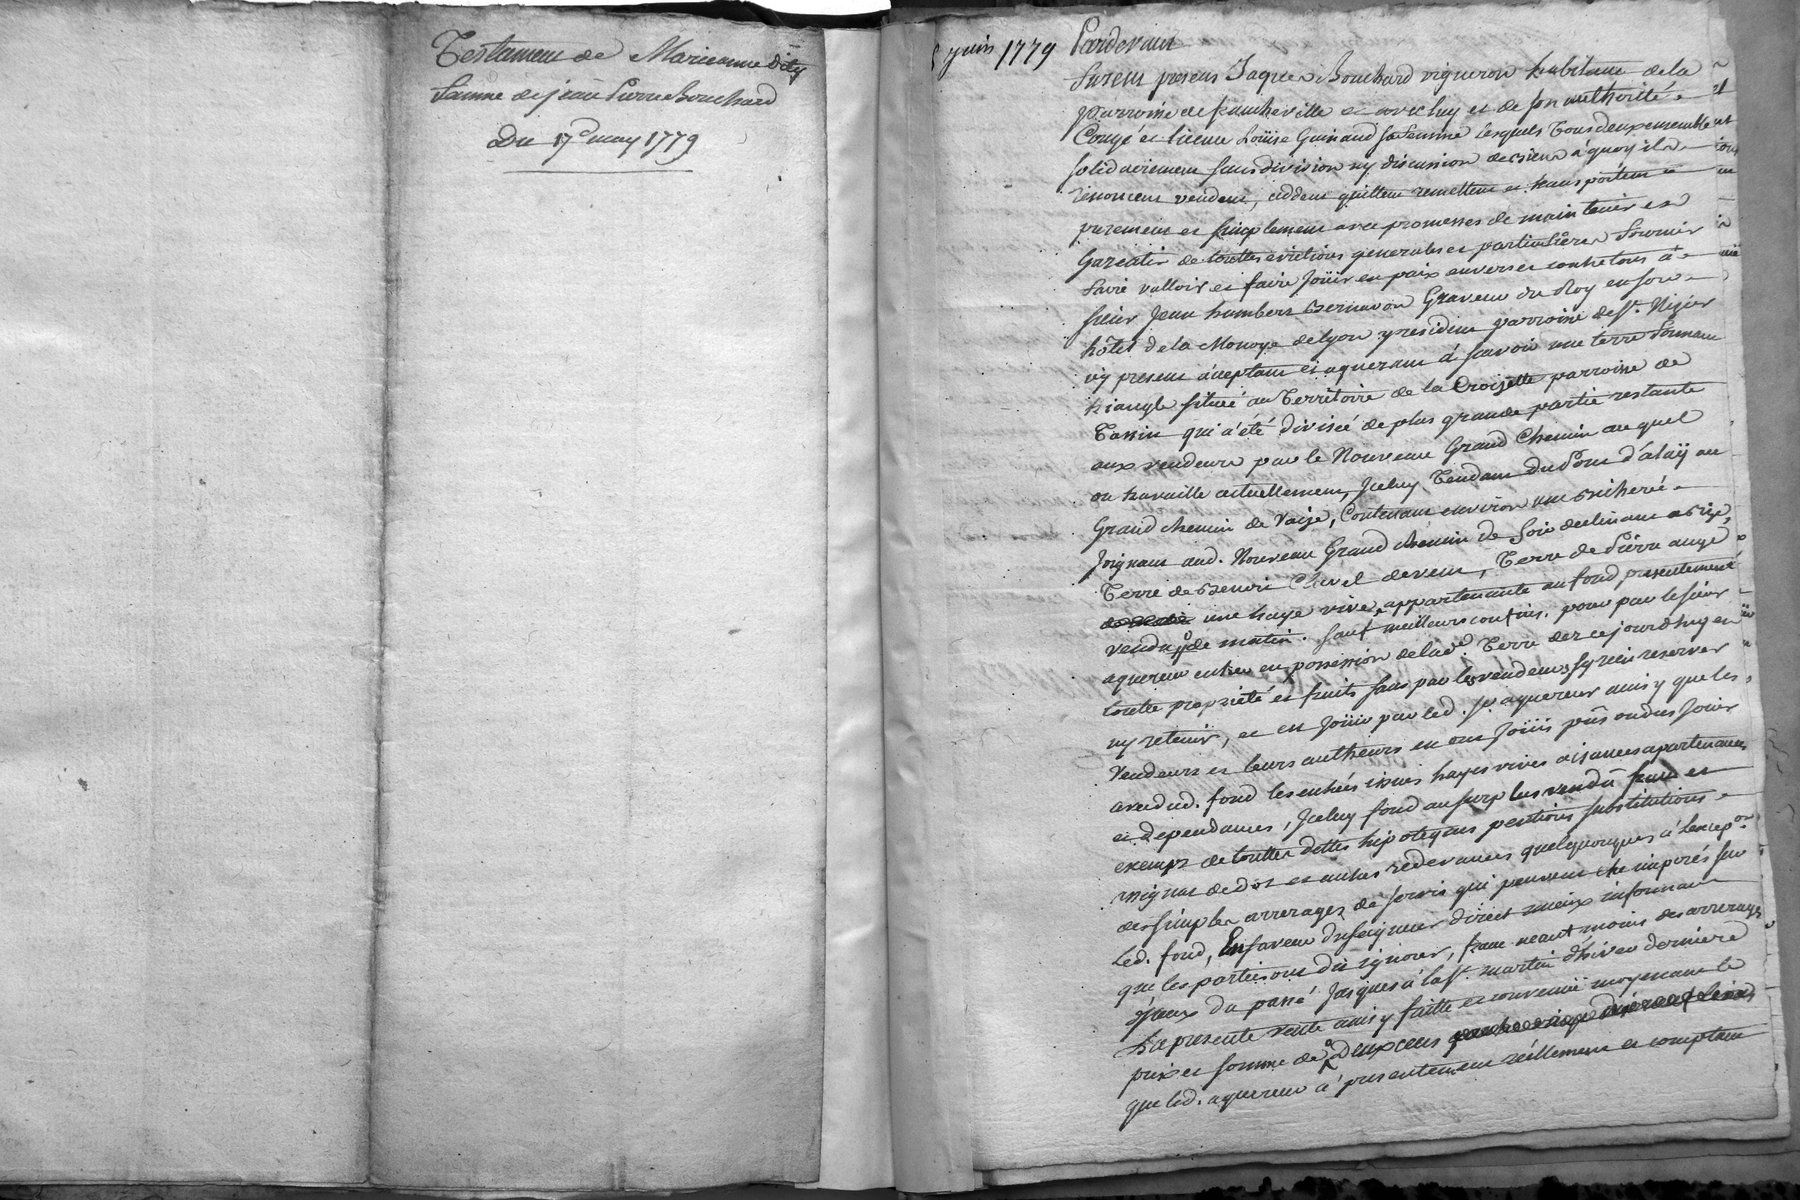 Testament de Marianne Dity
famme de jean Pierre Bouchard
Du 17e may 1779
juin 1779 Pardevant
furent presens Jaques Bouchard vigneron habitant de la
parroisse de francheville et avec luy et de son authorité
Congé et licence Loüise Guinand sa femme lesquels Tous deux ensemble
solidairement sans division ny discussion de biens à quoy ils
renoncent vendent, cèddent quittent remettent et transportent
purement et simplement avec promesses de maintenir et
Garentir de touttes evictions generales et particulières fournir
faire valloir et faire joüir en paix envers et contre tous à
sieur Jean humbert Bernavon Graveur du Roy en son
hôtel de la Monoye de lyon y residant parroisse de St. Nizier
icy present acceptant et aquerant à savoir une terre formant
triangle située au Territoire de la Croizette parroisse de
Tassin qui a été divisée de plus grande partie restante
aux vendeurs par le Nouveau Grand Chemin auquel
on travaille actuellement, Iceluy Tendant du Pont d'alaÿ au
Grand chemin de Vaize, Contenant environ une bicherée
Joignant aud. Nouveau Grand chemin de soir declinant a bize,
Terre de benoit Clavel de vent, Terre de Pierre augé
une haye vive appartenante au fond presentement
vendu de matin. sauf meilleurs confins. pour par le sieur
aquereur entrer en possession de lade Terre dez ce jourdhuy en
toutte proprieté et fruits sans par les vendeurs sy rien reserver
ny retenir, et en Joüir par led. sr. aquereur ainsy que les
Vendeurs et leurs autheurs en ont Joüii pûs ou dus Joüir
avec dud. fond les entrées issues hayes vives aisances apartenances
et dependances, Iceluy fond au surplus vendu franc et
exempt de touttes dettes hipoteques pentions substitutions
assignat de dot et autres redevances quelquonques à l'excepon.
des simples arrerages de servis qui peuvent être imposés sur
Led. fond, En faveur du seigneur direct mieux informant
que les parties ont dit ignorer, franc neantmoins des arrerages
d'jceux du passé jusques à la st. martin d'hiver derniere
La presente vente ainsy faitte et convenuë moyenant le
prix et somme de Deux cens
que led. aquereur a presentement réellement et comptant